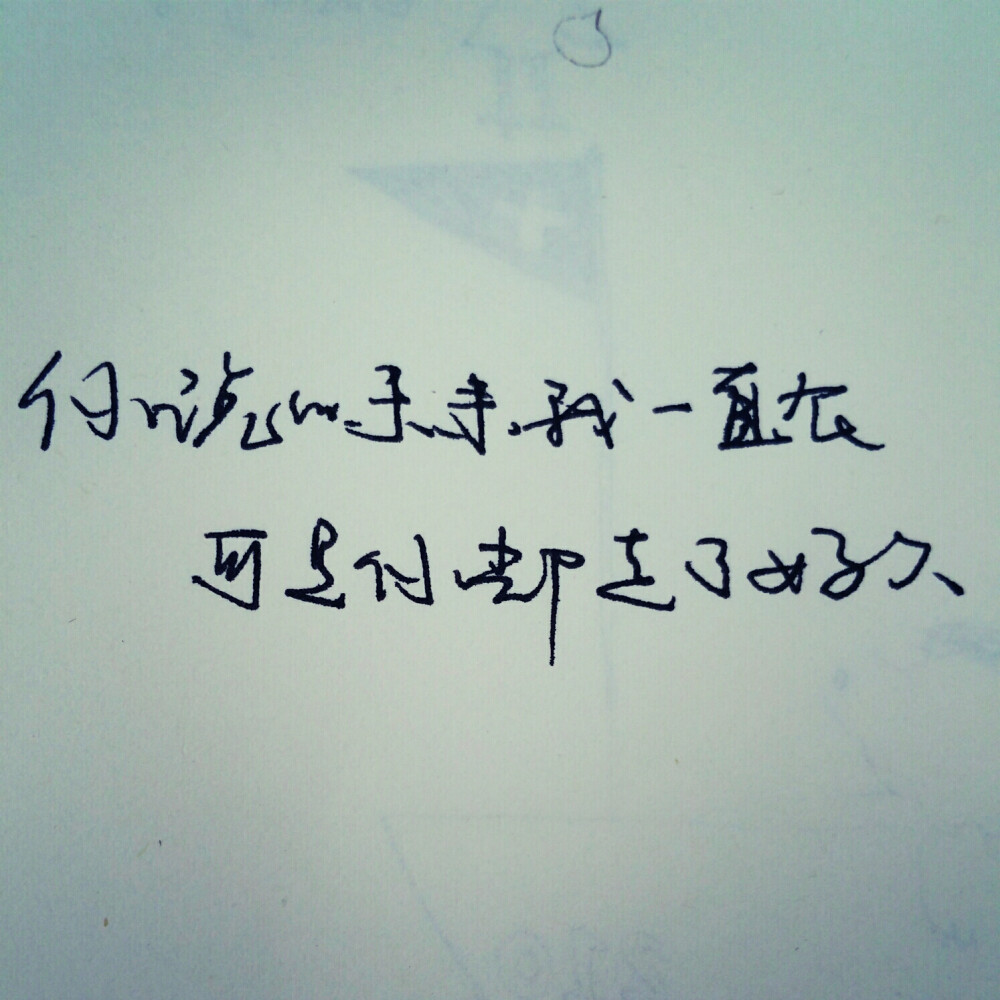 你说的未来我一直在
可是你却走了好久